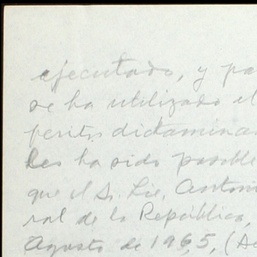 ejecutado, y pa
se ha utilizado el
peritos dictamina
les ha sido posible
que el Sr. Lic. Antoni
ral de la República,
Agosto de 1965, (A